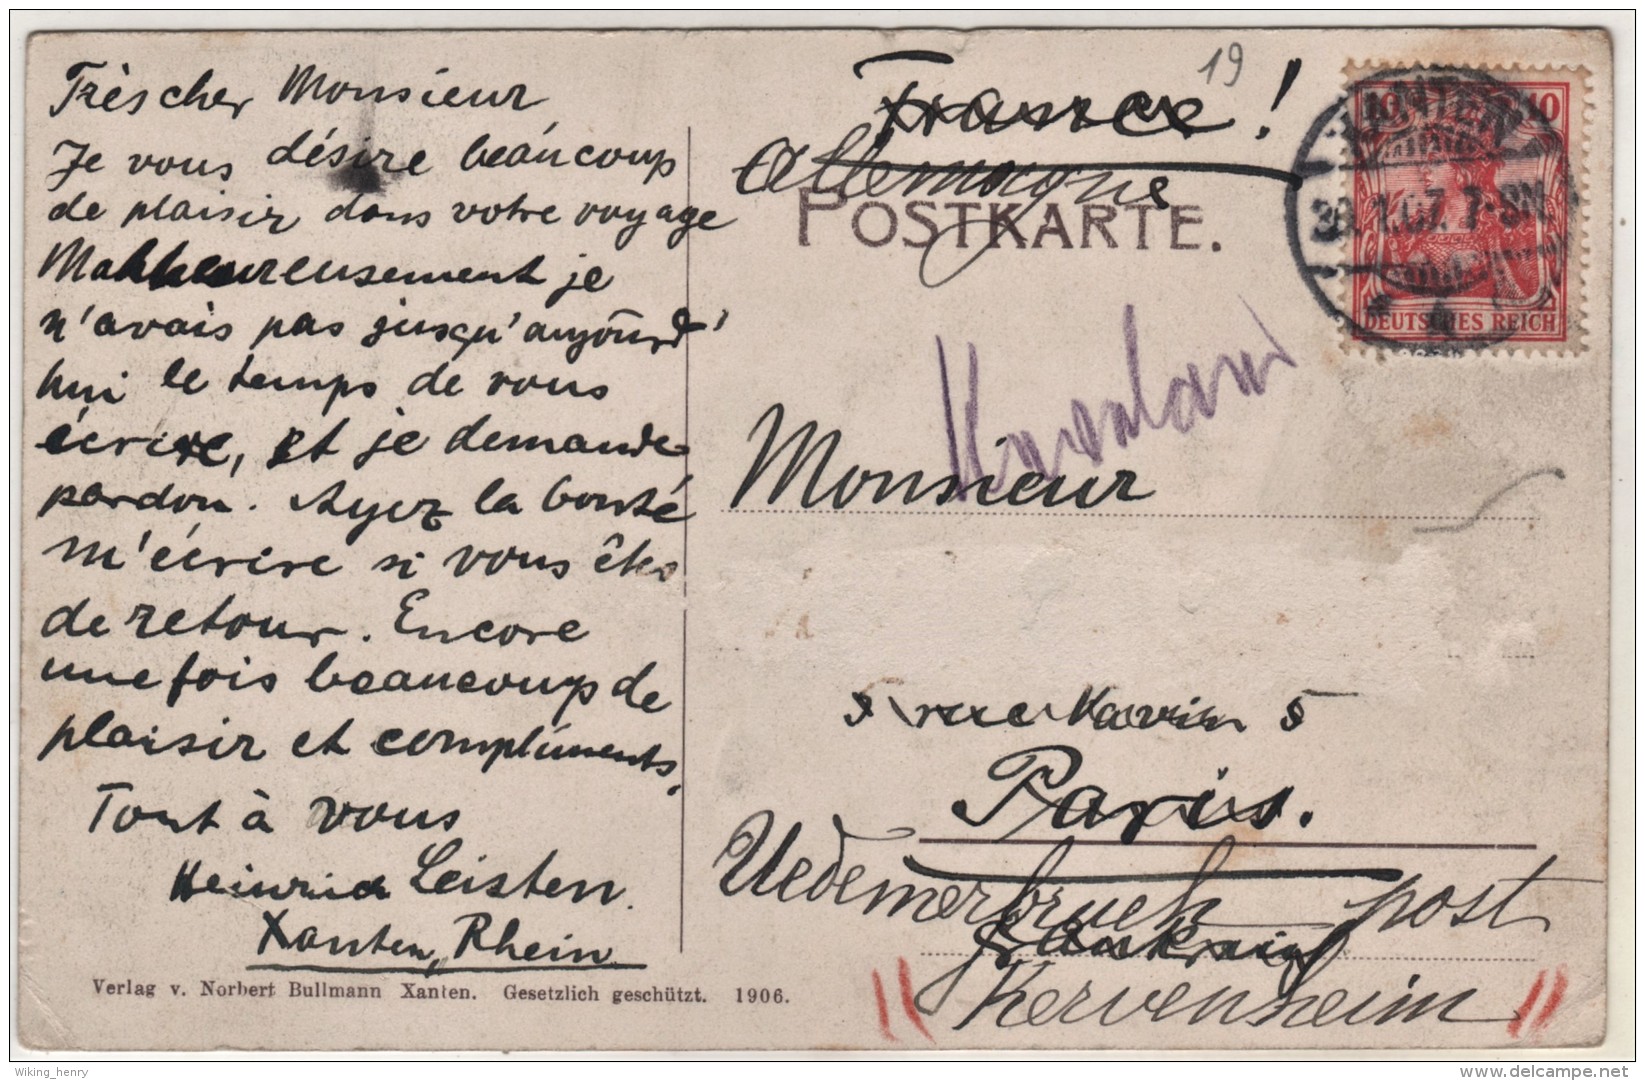 Très cher Monsieur
Je vous désire beaucoup
de plaisir dans votre voyage
Malheureusement je
n'avais pas jusqu'aujourd'
hui le temps de vous
écrire, et je demande
pardon. Ayez la bonté
m'écrire si vous êtes
de retour. Encore
une fois beaucoup de
plaisir et compliments.
Tout à vous
Heinrich Leisten.
Xanten, Rhein
Verlag v. Norbert Bullmann Xanten. Gesetzlich geschützt. 1906.
19
France!
Allemagne
POSTKARTE.
XANTEN
10 10
1.07. 7-8N.
DEUTSCHES REICH
Monsieur
5 rue 5
Paris.
Uedemerbruch post
Frankreich
Kervenheim
Wiking_henry
delcampe.net